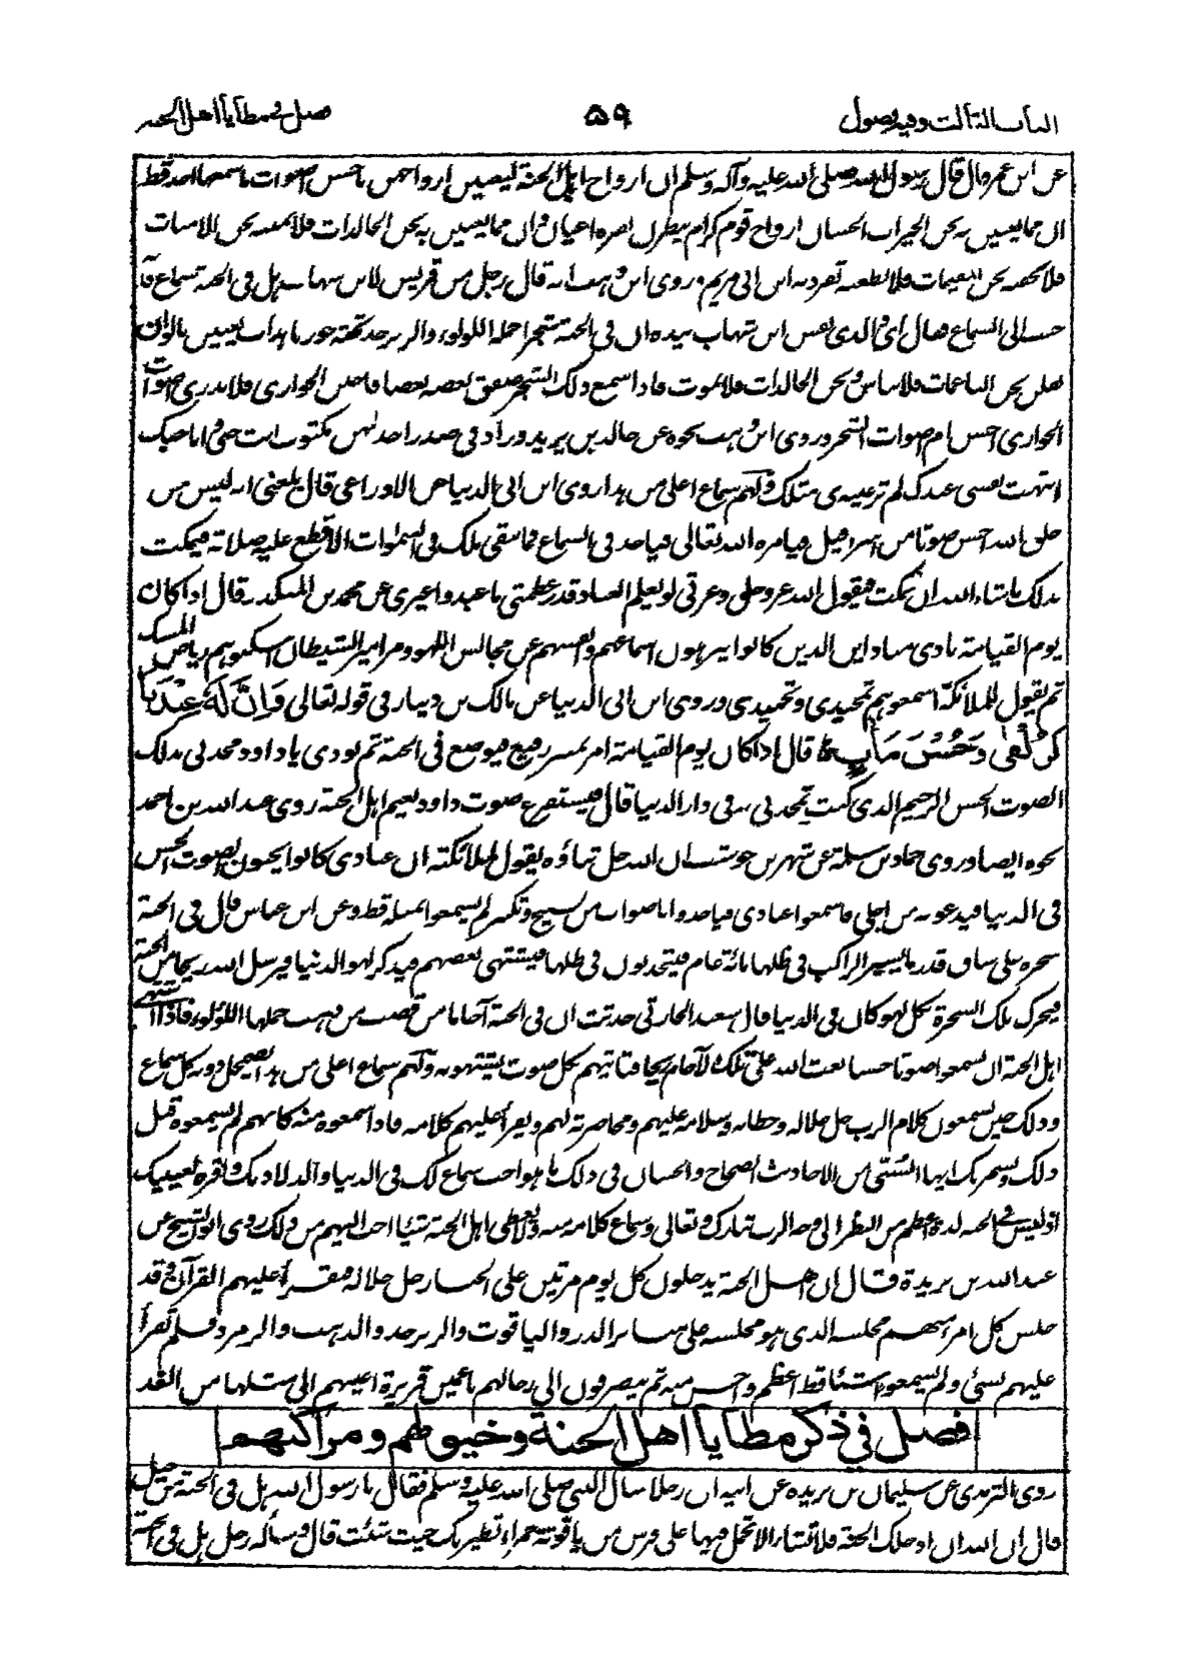 الباب الثالث وفيه فصول ٥٩ فصل في مطايا اهل الجنة
عن ابن عمر قال قال رسول الله صلى الله عليه وآله وسلم ان ازواج اهل الجنة ليغنين ازواجهن باحسن اصوات ما سمعها احد قط
ان مما يغنين به نحن الخيرات الحسان ازواج قوم كرام ينظرن بقرة اعيان وان مما يغنين به نحن الخالدات فلا نمتنه نحن الآمنات
فلا نخفنه نحن المقيمات فلا نظعنه تفرد به ابن ابي مريم وروى ابن وهب انه قال رجل من قريش لابن شهاب هل في الجنة سماع فانه
حبب الي السماع فقال اي والذي نفس ابن شهاب بيده ان في الجنة شجرا حمله اللؤلؤ والزبرجد تحته جوار ناهدات يغنين بالوان
يقلن نحن الناعمات فلا نبأس ونحن الخالدات فلا نموت فاذا سمع ذلك الشجر صفق بعضه بعضا فاجبن الجواري فلا ندري اصوات
الجواري احسن ام صوات الشجر وروى ابن وهب نحوه عن خالد بن يزيد وزاد في صدر احدٰهن مكتوب انت حبي وانا حبك
انتهت نفسي عندك لم تر عيني مثلك ولهم سماع اعلى من هذا روى ابن ابي الدنيا عن الاوزاعي قال بلغني انه ليس من
خلق الله احسن صوتا من اسرافيل فيامره الله تعالى فياخذ في السماع فما يبقى ملك في السموات الا قطع عليه صلاته فيمكث
بذلك ما شاء الله ان يمكث فيقول الله عز وجل وعزتي لو يعلم العباد قدر عظمتي ما عبدوا غيري عن محمد بن المنكدر قال اذا كان
يوم القيامة نادى مناد اين الذين كانوا ينزهون اسماعهم وانفسهم عن مجالس اللهو ومزامير الشيطان اسكنوهم رياض المسك
ثم يقول للملائكة اسمعوهم تمجيدي وتحميدي وروى ابن ابي الدنيا عن مالك بن دينار في قوله تعالى وَاِنَّ لَهٗ عِنْدَنَا
لَزُلْفٰى وَحُسْنَ مَاٰبٍ قال اذا كان يوم القيامة امر بمنبر رفيع فيوضع في الجنة ثم نودي يا داود مجدني بذلك
الصوت الحسن الرخيم الذي كنت تمجدني به في دار الدنيا قال فيستفرغ صوت داود نعيم اهل الجنة روى عبد الله بن احمد
نحوه ايضا وروى حماد بن سلمة عن شهر بن حوشب ان الله جل ثناؤه يقول لملائكته ان عبادي كانوا يحبون الصوت الحسن
في الدنيا فيدعونه من اجلي فاسمعوا عبادي فياخذوا باصوات من تسبيح وتكبير لم يسمعوا بمثله قط وعن ابن عباس قال في الجنة
شجرة على ساق قدر ما يسير الراكب في ظلها مائة عام فيتحدثون في ظلها فيشتهي بعضهم فيذكر لهو الدنيا فيرسل الله ريحا من الجنة
فيحرك تلك الشجرة بكل لهو كان في الدنيا قال سعيد الحارثي حدثت ان في الجنة آجاما من قصب من ذهب حملها اللؤلؤ فاذا اشتهى
اهل الجنة ان يسمعوا صوتا حسنا بعث الله على تلك الآجام ريحا فتاتيهم بكل صوت يشتهونه ولهم سماع اعلى من هذا يضمحل دونه كل سماع
وذلك حين يسمعون كلام الرب جل جلاله وخطابه وسلامه عليهم ومحاضرته لهم ويقرأ عليهم كلامه فاذا سمعوه منه فكانهم لم يسمعوه قبل
ذلك وسيمر بك ايها السني من الاحاديث الصحاح والحسان في ذلك ما هو احب سماع لك في الدنيا والذ لاذنك واقر لعينك
اذ ليس في الجنة لذة اعظم من النظر الى وجه الرب تبارك وتعالى وسماع كلامه منه ولا يعطى اهل الجنة شيئا احب اليهم من ذلك روى ابو الشيخ عن
عبد الله بن بريدة قال ان اهل الجنة يدخلون كل يوم مرتين على الجبار جل جلاله فيقرأ عليهم القرآن وقد
جلس كل امرئ منهم مجلسه الذي هو مجلسه على منابر الدر والياقوت والزبرجد والذهب والزمرد فلم تقرأ
عليهم بشيء ولم يسمعوا شيئا قط اعظم واحسن منه ثم ينصرفون الى رحالهم ناعمين قريرة اعينهم الى مثلها من الغد
فصل في ذكر مطايا اهل الجنة وخيولهم ومراكبهم
روى الترمذي عن سليمان بن بريدة عن ابيه ان رجلا سال النبي صلى الله عليه وسلم فقال يا رسول الله هل في الجنة من خيل
قال ان الله ان ادخلك الجنة فلا تشاء الا تحمل فيها على فرس من ياقوتة حمراء تطير بك حيث شئت قال وسأله رجل هل في الجنة